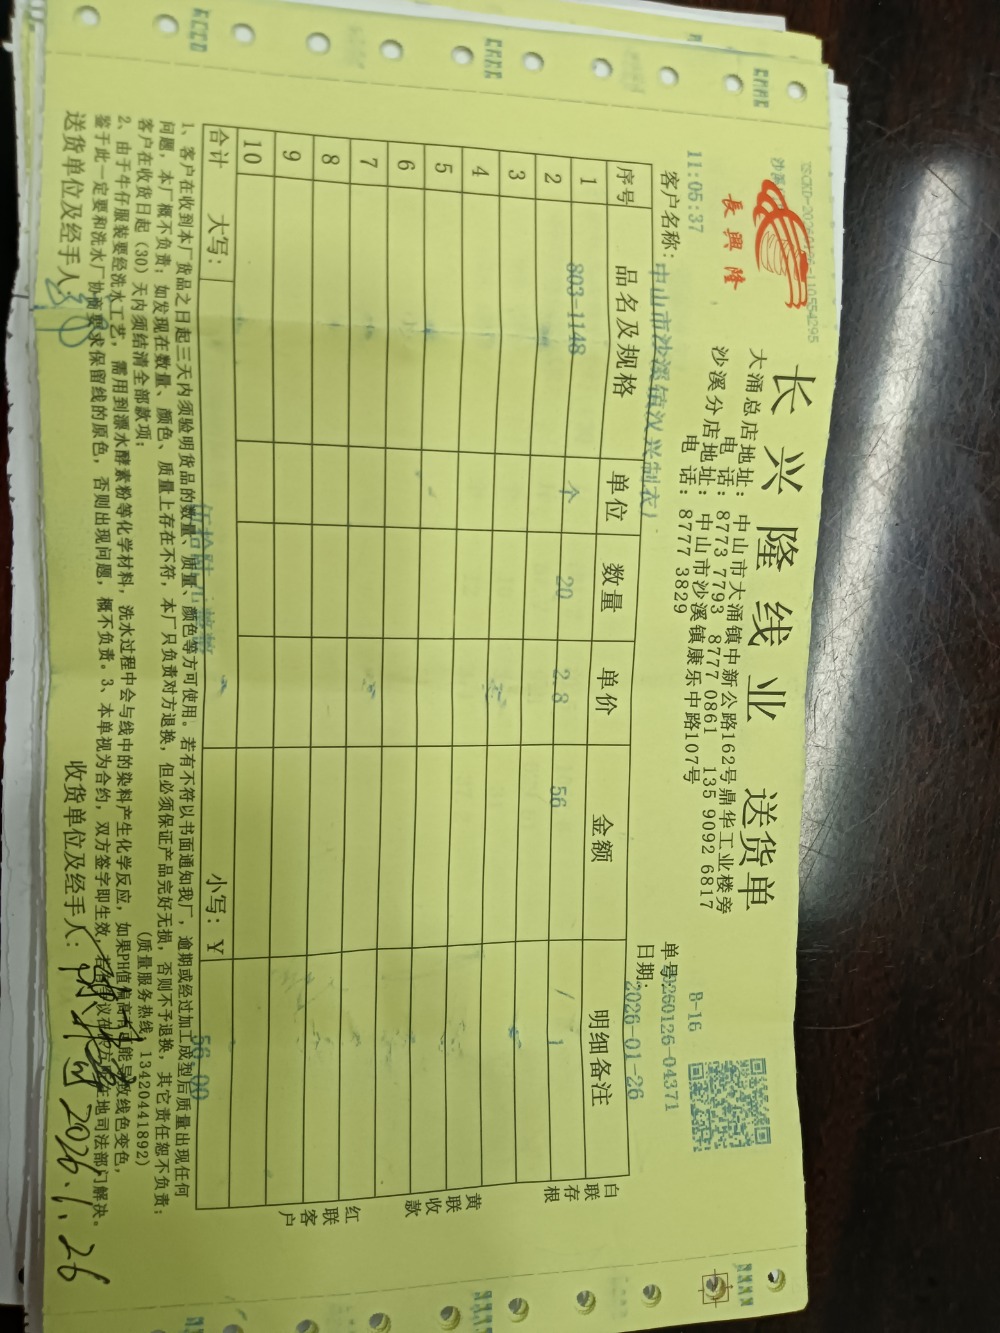 长兴隆线业 送货单
長興隆
大涌总店地址：中山市大涌镇中新公路162号鼎华工业楼旁
电 话：8773 7793 8777 0861 135 9092 6817
沙溪分店地址：中山市沙溪镇康乐中路107号
电 话：8777 3829
B-16
11:05:37
单号:20260126-04371
客户名称：中山市沙溪镇汉兴制衣厂
日期：2026-01-26
序号 品名及规格 单位 数量 单价 金额 明细备注
1 803-1148 个 20 2.8 56 / 1
2
3
4
5
6
7
8
9
10
合计 大写： 伍拾陆元整 小写：￥ 56.00
白联存根
黄联收款
红联客户
1、客户在收到本厂货品之日起三天内须验明货品的数量、质量、颜色等方可使用。若有不符以书面通知我厂，逾期或经过加工成型后质量出现任何
问题，本厂概不负责；如发现在数量、颜色、质量上存在不符，本厂只负责对方退换，但必须保证产品完好无损，否则不予退换，其它责任恕不负责；
客户在收货日起（30）天内须结清全部款项； （质量服务热线：13420441892）
2、由于牛仔服装要经洗水工艺，需用到漂水酵素粉等化学材料，洗水过程中会与线中的染料产生化学反应，如果PH值偏高有可能导致线色变色，
鉴于此一定要和洗水厂协商要求保留线的原色，否则出现问题，概不负责。3、本单视为合约，双方签字即生效，若有争议在供方所在地司法部门解决。
送货单位及经手人： 收货单位及经手人： 2026.1.26